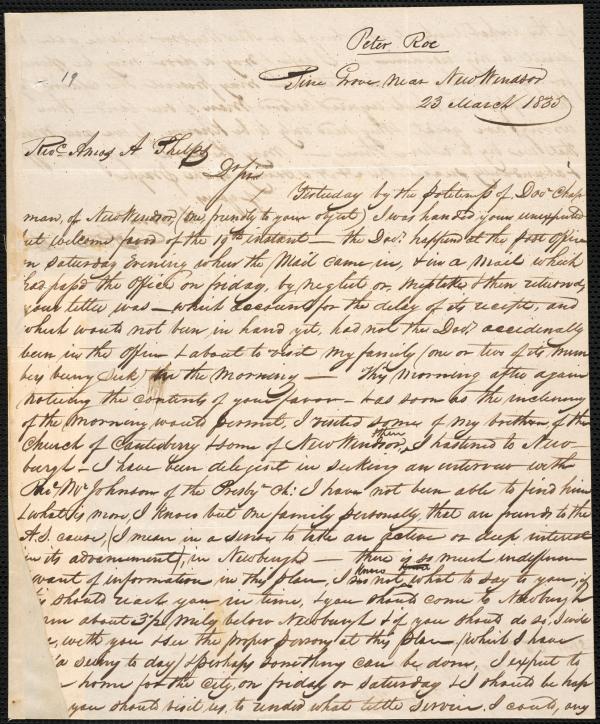 Peter Roe
19
Pine Grove near New Windsor
23 March 1835
Revd. Amos A Phelps
Dr Sir
Yesterday by the politeness of Docr Chap
man, of New Windsor, (one friendly to your object) I was handed your unexpected
but welcome favor of the 19th instant — the Docr. happened at the post Office
on Saturday Evening when the Mail came in, & in a Mail which
had pass'd the Office on friday, by neglect or, mistake & then returned,
your letter was — which accounts for the delay of its receipt, and
which would not been, in hand yet, had not the Docr accidenally
been in the Office & about to visit my family (one or two of its mem
bers being sick) in the Morning — This Morning after again
noticing the contents of your favor — & as soon as the inclemency
of the Morning would permit, I visited some of my brethren of the
Church of Canterberry & some of New Windsor, then I hastened to New-
burgh — I have been delegent in seeking an interview with
Revd. Mr Johnson of the Presbyn Ch: I have not been able to find him
& what is more, I know but one family personally, that are friends to the
A.S. cause, (I mean, in a sense to take an active or deep interest
in its advancement), in Newburgh — there is so much indifference
want of information in this place, I know not what to say to you, if
this should reach you in time, & you should come to Newburgh
about 3½ Miles below Newburgh & if you should do so, I will
with you & see the proper persons at this place (which I have
a seeing to day) & perhaps something can be done, I expect to
home for the city, on friday or saturday & I should be happy
you should visit us, to render what little service I could, any